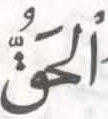 اَلحَقُّ